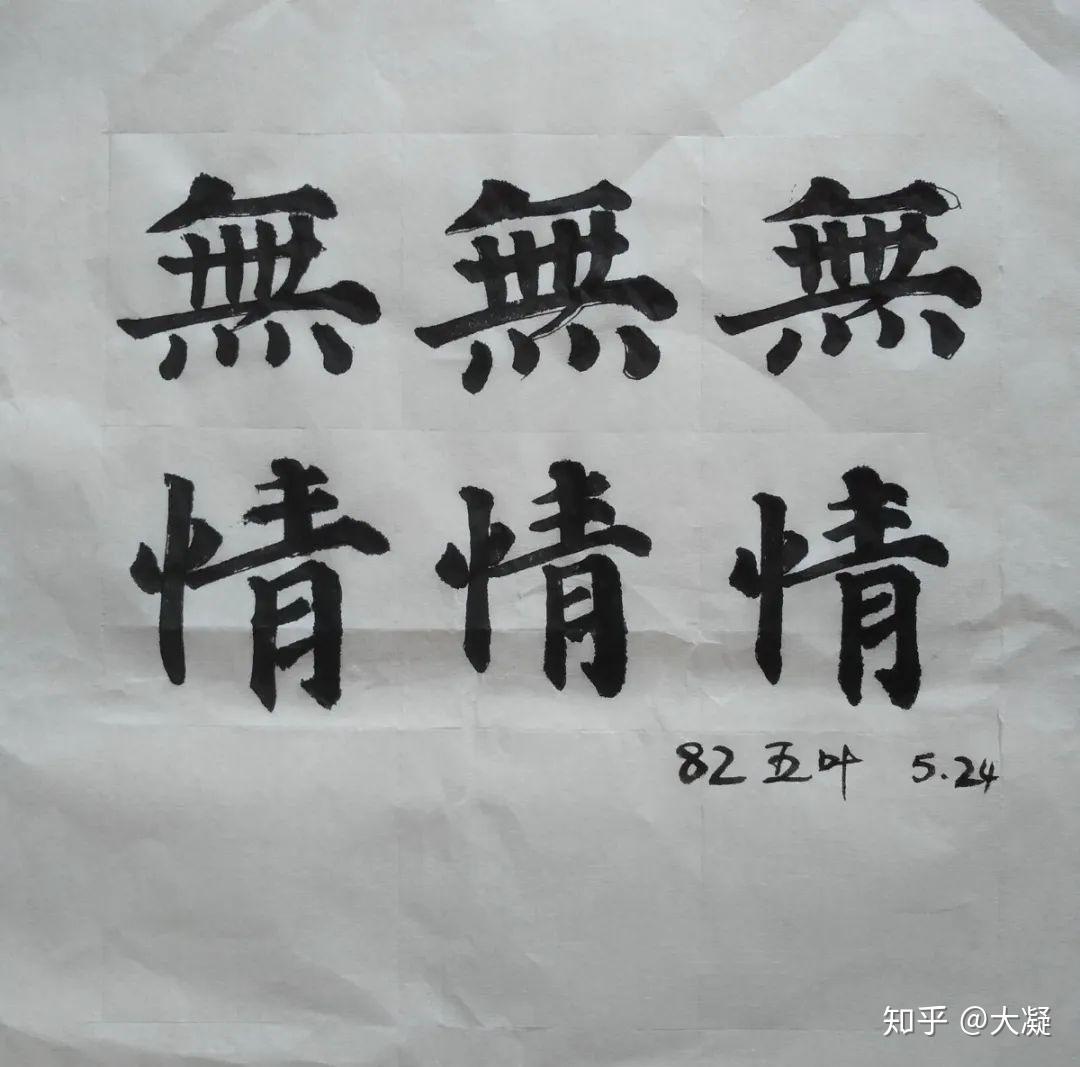 無無無
情情情
82 五叶 5.24
知乎 @大凝